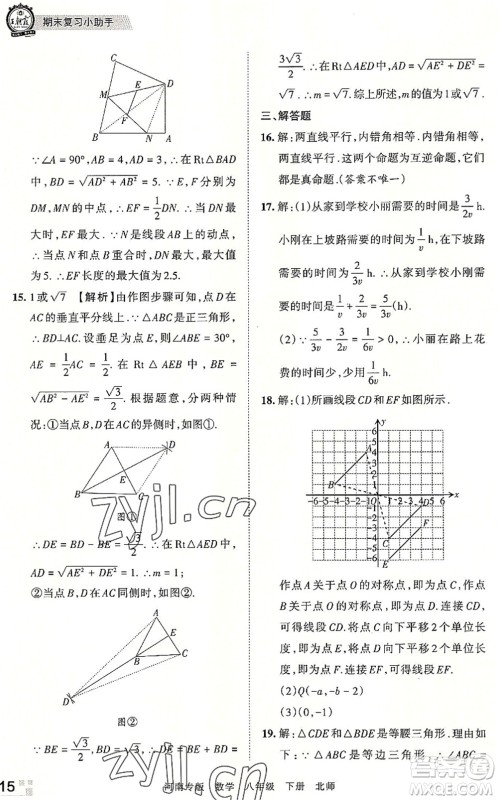 王朝霞
期末复习小助手
M
D
E
F
B
N
A
∵∠A=90°,AB=4,AD=3,∴在Rt△BAD
中,BD=√(AD²+AB²)=5.∵E,F分别为
DM,MN的中点,∴EF=1/2DN.∴当DN
最大时,EF最大.∵N是线段AB上的动点,
∴当点N和点B重合时,DN=BD=5最大.
∴EF长度的最大值为2.5.
15.1或√7 【解析】由作图步骤可知,点D在
AC的垂直平分线上.∵△ABC是正三角形,
∴BD⊥AC.设垂足为点E,则∠ABE=30°,
AE=1/2AC=1/2.在Rt△AEB中,BE=
√(AB²-AE²)=√3/2.根据题意,分两种情
况:①当点B,D在AC的异侧时,如图①.
A
D
E
B
C
图①
∴DE=BD-BE=√3/2.∴在Rt△AED中,
AD=√(AE²+DE²)=1.∴m=1;
②当点B,D在AC同侧时,如图②.
A
E
B
C
D
图②
∵BE=√3/2,BD=√3,∴DE=BD+BE=
3√3/2.∴在Rt△AED中,AD=√(AE²+DE²)=
√7.∴m=√7.综上所述,m的值为1或√7.
三、解答题
16.解:两直线平行,内错角相等.内错角相等,
两直线平行.这两个命题为互逆命题,它们
都是真命题.(答案不唯一)
17.解:(1)从家到学校小丽需要的时间是5/3v h.
小刚在上坡路需要的时间为1/v h,在下坡路
需要的时间为2/3v h,∴从家到学校小刚需要
的时间是1/v+2/3v=5/3v(h).
(2)∵5/3v-3/2v=1/6v>0,∴小丽在路上花
费的时间少,少1/6v h.
18.解:(1)所画线段CD和EF如图所示.
y
6
5
4
3
2
1
A
B
-6-5-4-3-2-1 O 1 2 3 4 5 6 x
D
C
F
E
作点A关于点O的对称点,即为点C,作点
B关于点O的对称点,即为点D.连接CD,
可得线段CD.将点C向下平移2个单位长
度,即为点E,将点D向下平移2个单位长
度,即为点F.连接EF,可得线段EF.
(2)Q(-a,-b-2)
(3)(0,-1)
19.解:∵△CDE和△DBG是等腰三角形.
证明如下:∵△ABC是等边三角形,∴
15
河南专版 数学 八年级 下册 北师
zyjl.cn
zyjl.cn